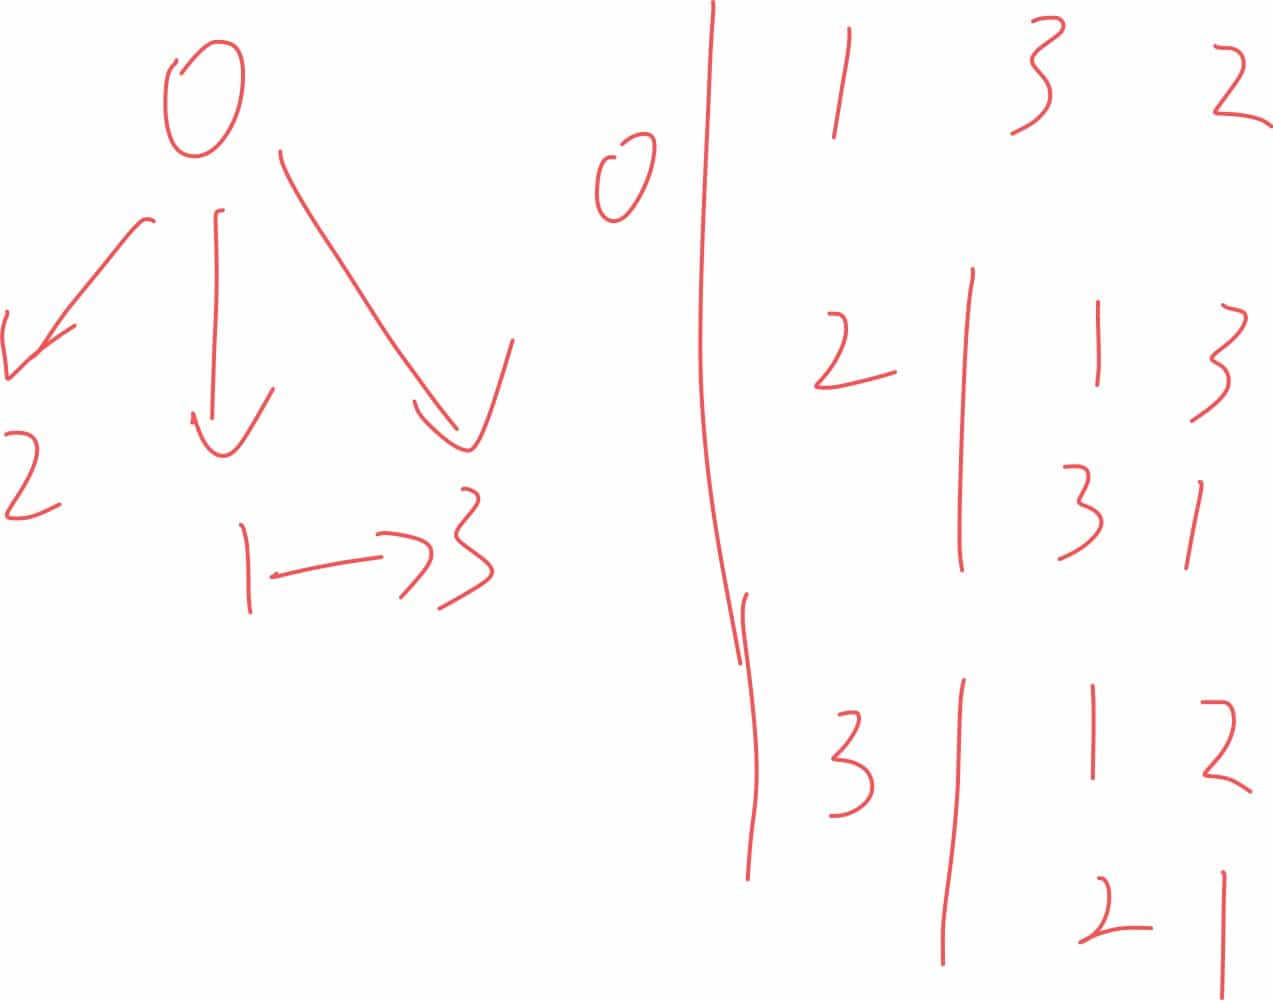 0
2
1 3
0
1 3 2
2 1 3
3 1
3 1 2
2 1